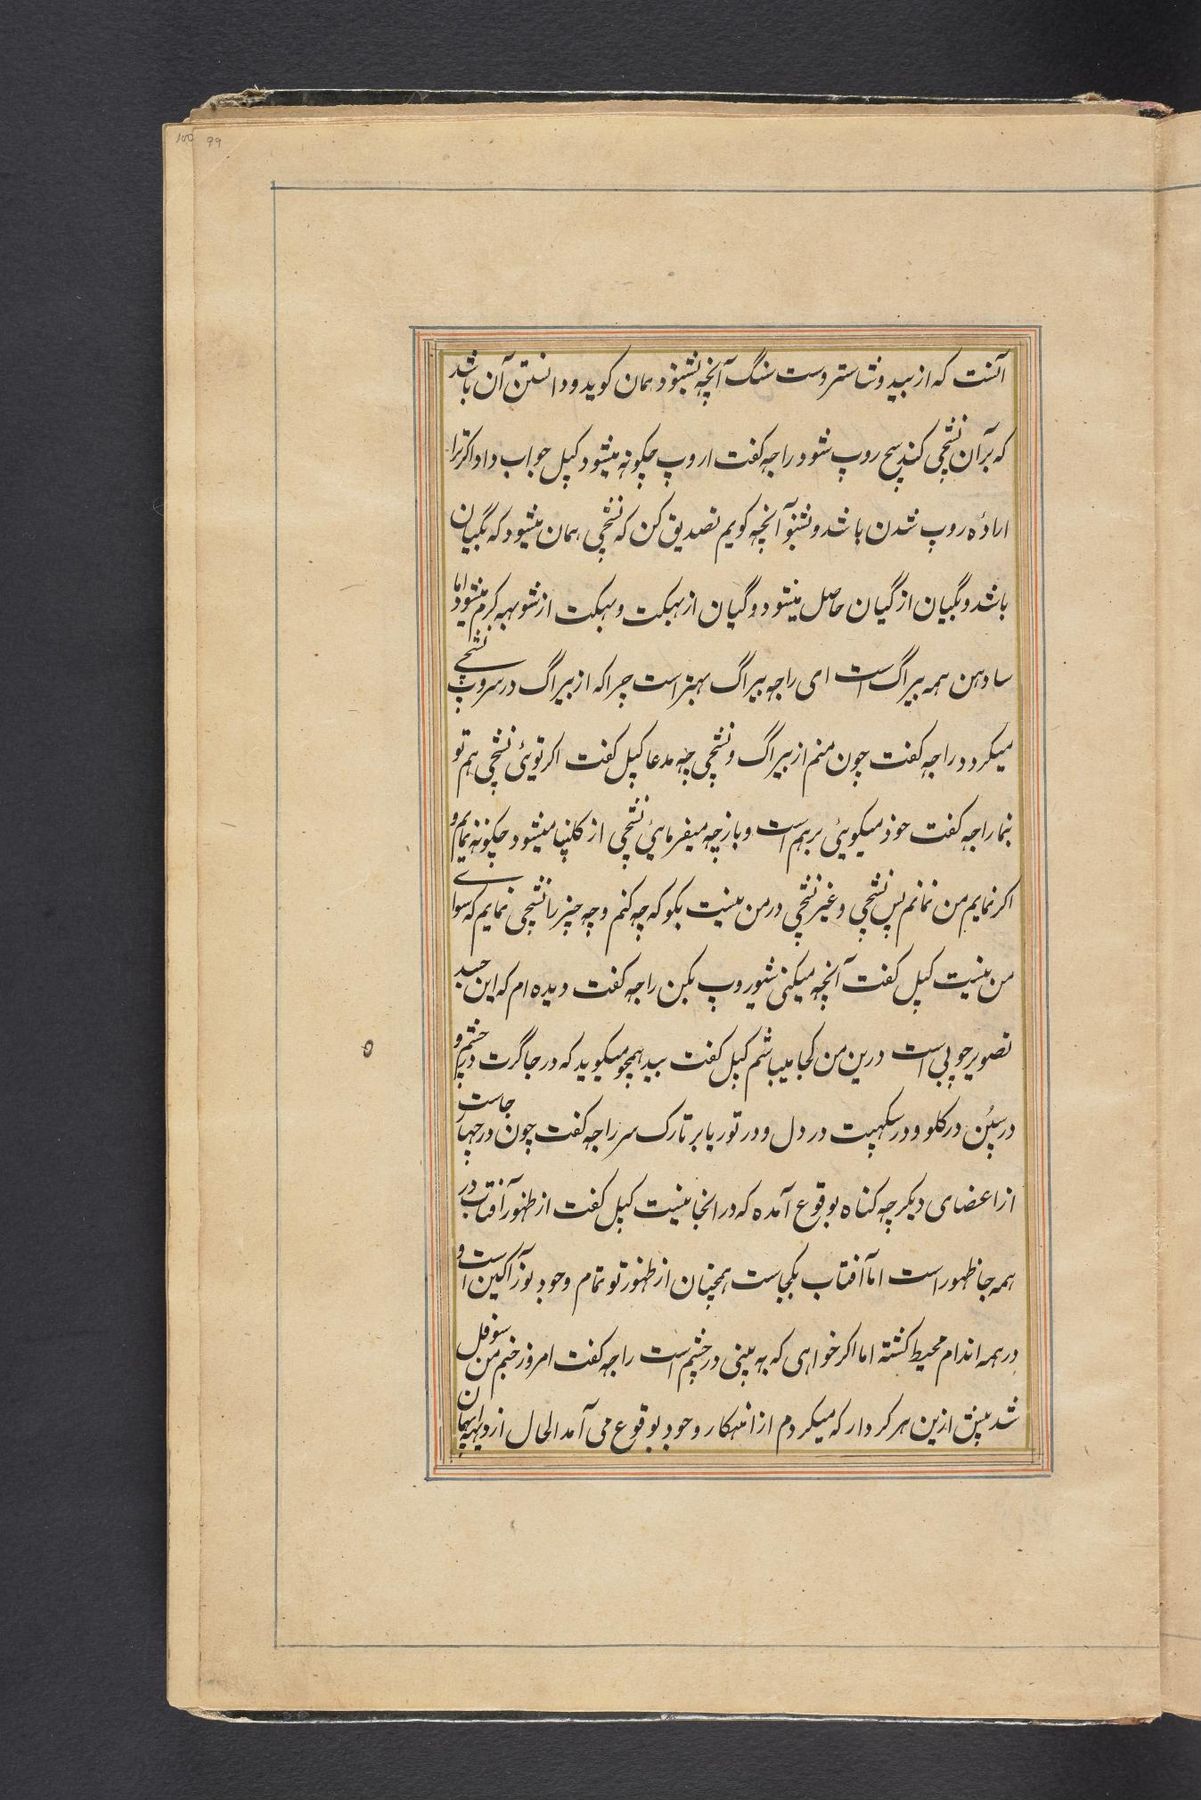 100 99
آنست که از بید و شاستر و ست سنگ آنچه بشنود همان کوید و دانستن آن باشد
که بر آن نشچی کند پسح روپ شود راجه کفت اروپ چکونه میشود کپل جواب داد اکر ترا
ارادۀ روپ شدن باشد و بشنو آنچه کویم تصدیق کن که نشچی همان میشود که بگیان
باشد و بگیان از گیان حاصل میشود و گیان از بهکت و بهکت از شوبهه کرم میشود اما
سادهن همه بیراگ است ای راجه بیراگ بهتر است چرا که از بیراگ در سروپ نشچی
میکردد راجه کفت چون منم از بیراگ و نشچی چه مدعا کپل کفت اکر توئی نشچی هم تو
بنما راجه کفت خود میکوئی برهم است و باز چه میفرمائی نشچی از کلپنا میشود چکونه نمایم و
اکر نمایم من نمانم پس نشچی و غیر نشچی در من نیست بکو که چه کنم و چه چیز را نشچی نمایم که سوای
من نیست کپل کفت آنچه میکنی شیو روپ بکن راجه کفت دیده ام که این جسد
تصویر چوبی است درین من کجا میباشم کپل کفت بید همچو میکوید که در جاگرت در چشم و
در سپن در کلو و در سکهپت در دل و در توریا بر تارک سر راجه کفت چون در چهار جاست
از اعضای دیکر چه کناه بوقوع آمده که در انجا نیست کپل کفت از ظهور آفتاب در
همه جا ظهور است اما آفتاب یکجاست همچنان از ظهور تو تمام وجود نوراکین است و
در همه اندام محیط کشته اما اکر خواهی که به بینی در چشم است راجه کفت امروز جنم من سوفل
شد پیش ازین هر کردار که میکردم از اهنکار وجود بوقوع می آمد الحال از دیهه ابهمان